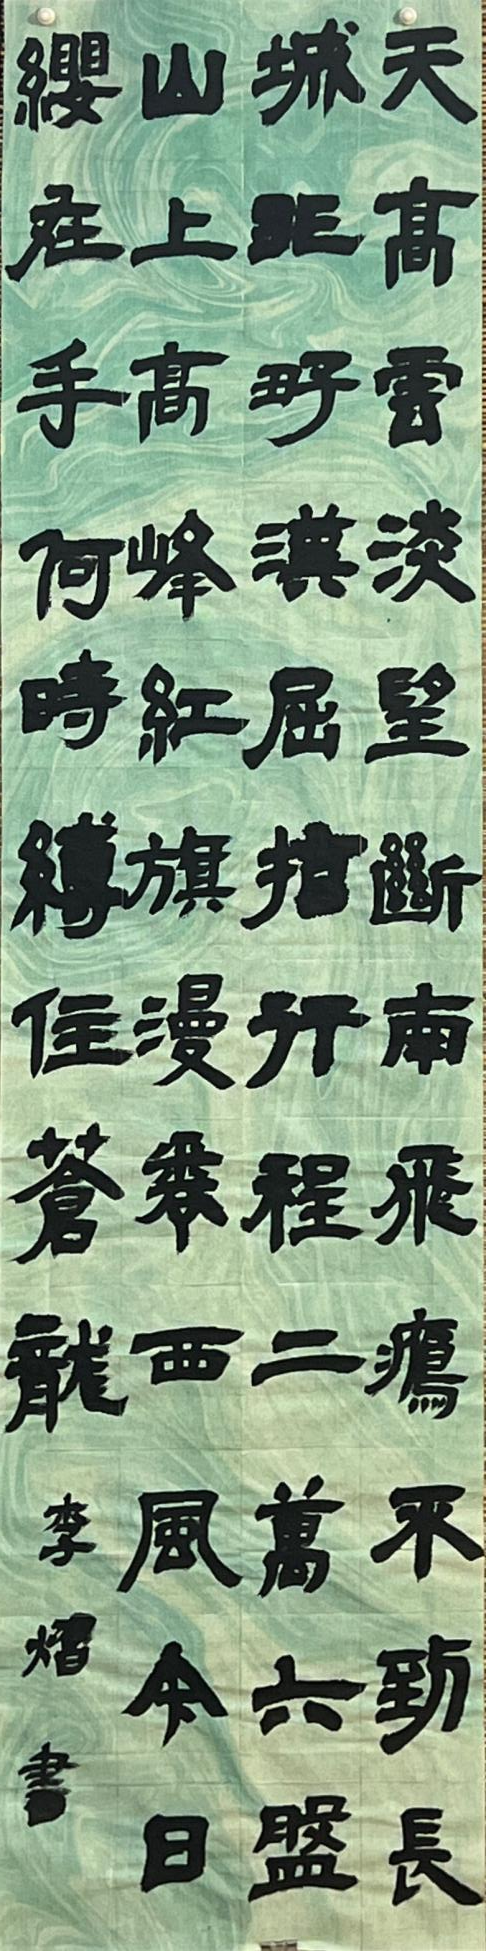 天髙雲淡望斷南飛鴈不到長
城非好漢屈指行程二萬六盤
山上髙峰紅旗漫卷西風今日
纓在手何時縛住蒼龍 李熠書